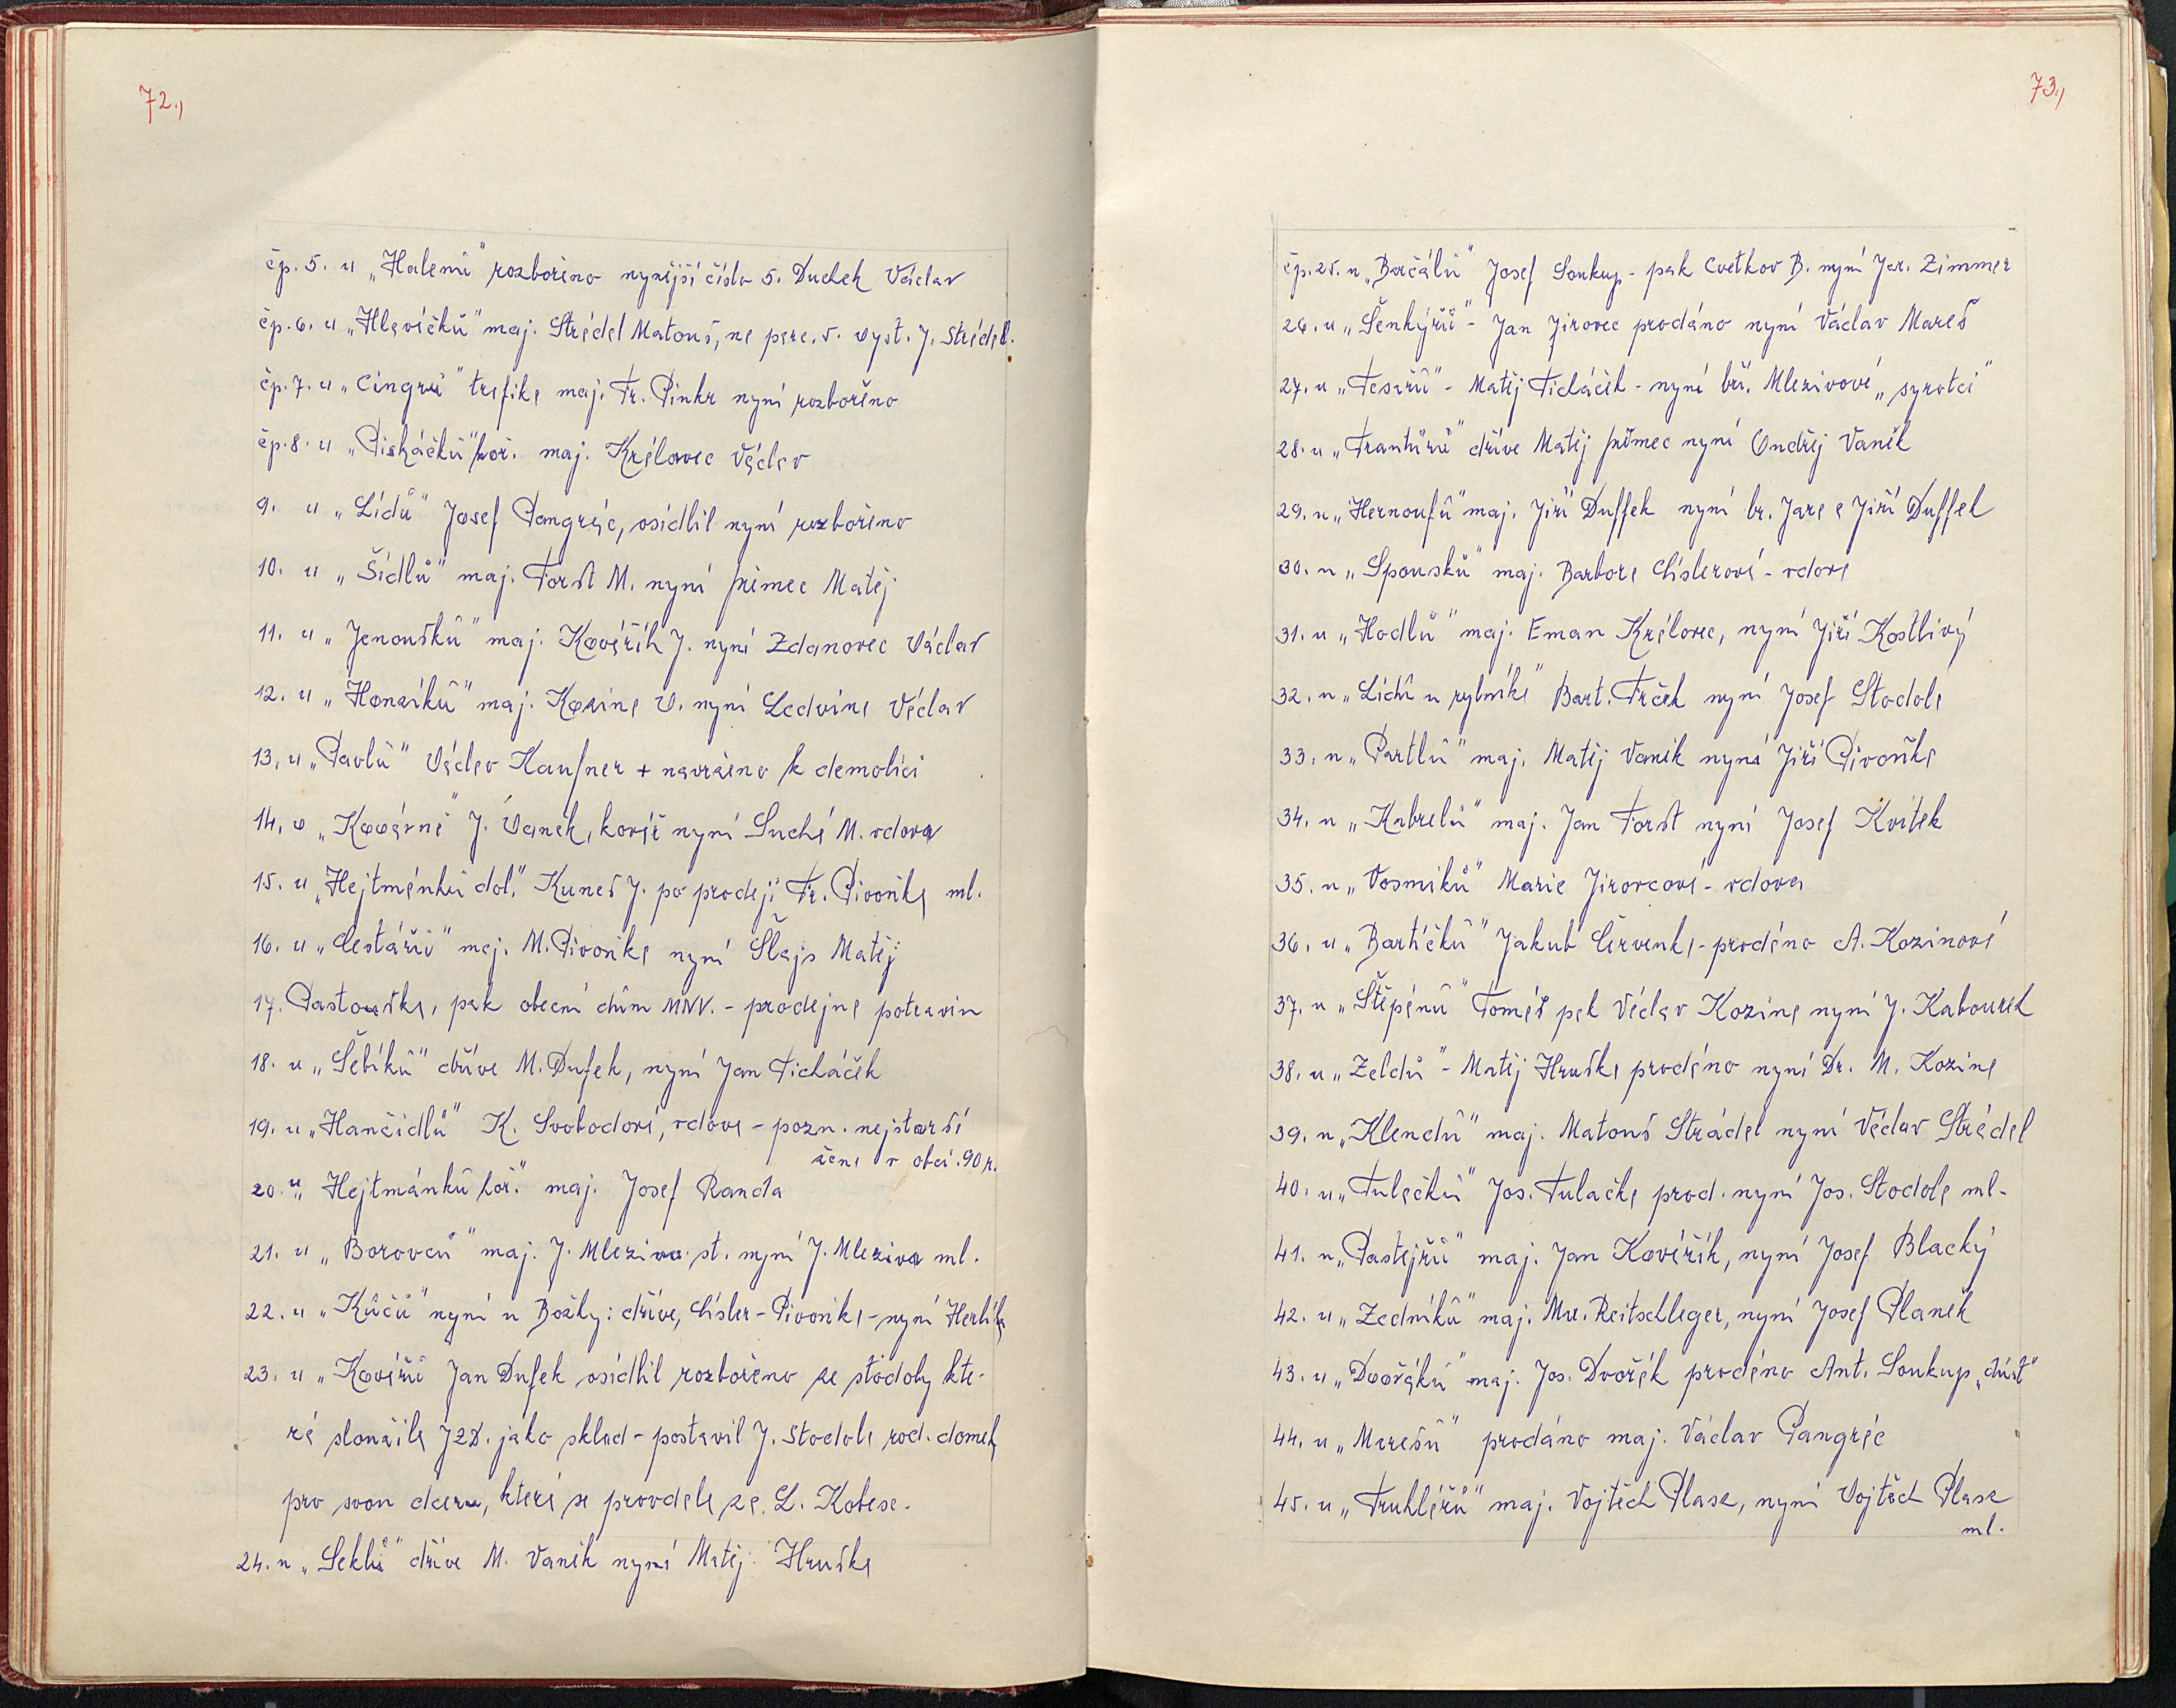 72.,
čp. 5. u „Halemů" rozbořeno nynější číslo 5. Duchek Václav
čp. 6. u „Hlavičků" maj. Strádal Matouš, na parc. 5. vyst. J. Strádal.
čp. 7. u „Cingrů" trafika maj. Fr. Pinkr nyní rozbořeno
čp. 8. u „Piskáčků" hoř. maj. Královec Václav
9. u „Lídů" Josef Pangrác, osídlil nyní rozbořeno
10. u „Šídlů" maj. Foršt M. nyní Přímec Matěj
11. u „Janoušků" maj. Kovářík J. nyní Zdanovec Václav
12. u „Honzíků" maj. Kozina V. nyní Ledvina Václav
13, u „Pavlů" Václav Kaufner + navráceno k demolici
14, v „Kovárně" J. Vaněk, kovář nyní Suchá M. vdova
15. u „Hejtmánků dol." Kuneš J. po prodeji Fr. Pivoňka ml.
16. u „Cestářů" maj. M. Pivoňka nyní Šlajs Matěj
17. Pastouška, pak obecní dům MNV. - prodejna potravin
18. u „Šebíků" dříve M. Dufek, nyní Jan Ticháček
19. u „Hančidlů" K. Svobodová, vdova - pozn. nejstarší
žena v obci. 90 r.
20. u „Hejtmánků hoř." maj. Josef Randa
21. u „Borovců" maj. J. Mleziva st. nyní J. Mleziva ml.
22. u „Kůčů" nyní u Božky: dříve, Císler - Pivoňka - nyní Herlík
23. u „Kovářů Jan Dufek osídlil rozbořeno ze stodoly kte-
rá sloužila JZD. jako sklad - postavil J. Stodola rod. domek
pro svou dceru, která se provdala za L. Kobese.
24. u „Seklů" dříve M. Vaněk nyní Matěj Hruška
73.,
čp. 25. u „Barčálů" Josef Soukup - pak Cvetkov B. nyní Jar. Zimmer
26. u „Šenkýřů" - Jan Jirovec prodáno nyní Václav Mareš
27. u „Tesařů" - Matěj Ticháček - nyní bří. Mlezivové „syrotci"
28. u „Frantůrů" dříve Matěj Přímec nyní Ondřej Vaněk
29. u „Hernoufů" maj. Jiří Duffek nyní br. Jara a Jiří Duffek
30. u „Spousků" maj. Barbora Císlerová - vdova
31. u „Hodlů" maj. Eman Královec, nyní Jiří Kostlivý
32. u „Lídů u rybníka" Bart. Frček nyní Josef Stodola
33. u „Partlů" maj. Matěj Vaněk nyní Jiří Pivoňka
34. u „Kabrelů" maj. Jan Foršt nyní Josef Kvítek
35. u „Vosmíků" Marie Jirovcová - vdova
36. u „Bartíčků" Jakub Červenka - prodáno A. Kozinová
37. u „Štěpánů" Tomáš pak Václav Kozina nyní J. Kabourek
38. u „Zeldů" - Matěj Hruška prodáno nyní Dr. M. Kozina
39. u „Klendů" maj. Matouš Strádal nyní Václav Strádal
40. u „Tulačků" Jos. Tulačka prod. nyní Jos. Stodola ml.
41. u „Pastejřů" maj. Jan Kovářík, nyní Josef Blacký
42. u „Zedníků" maj. Mar. Reitschleger, nyní Josef Planěk
43. u „Dvořáků" maj. Jos. Dvořák prodáno Ant. Soukup „důst"
44. u „Marešů" prodáno maj. Václav Pangrác
45. u „Truhlářů" maj. Vojtěch Plasz, nyní Vojtěch Plasz
ml.